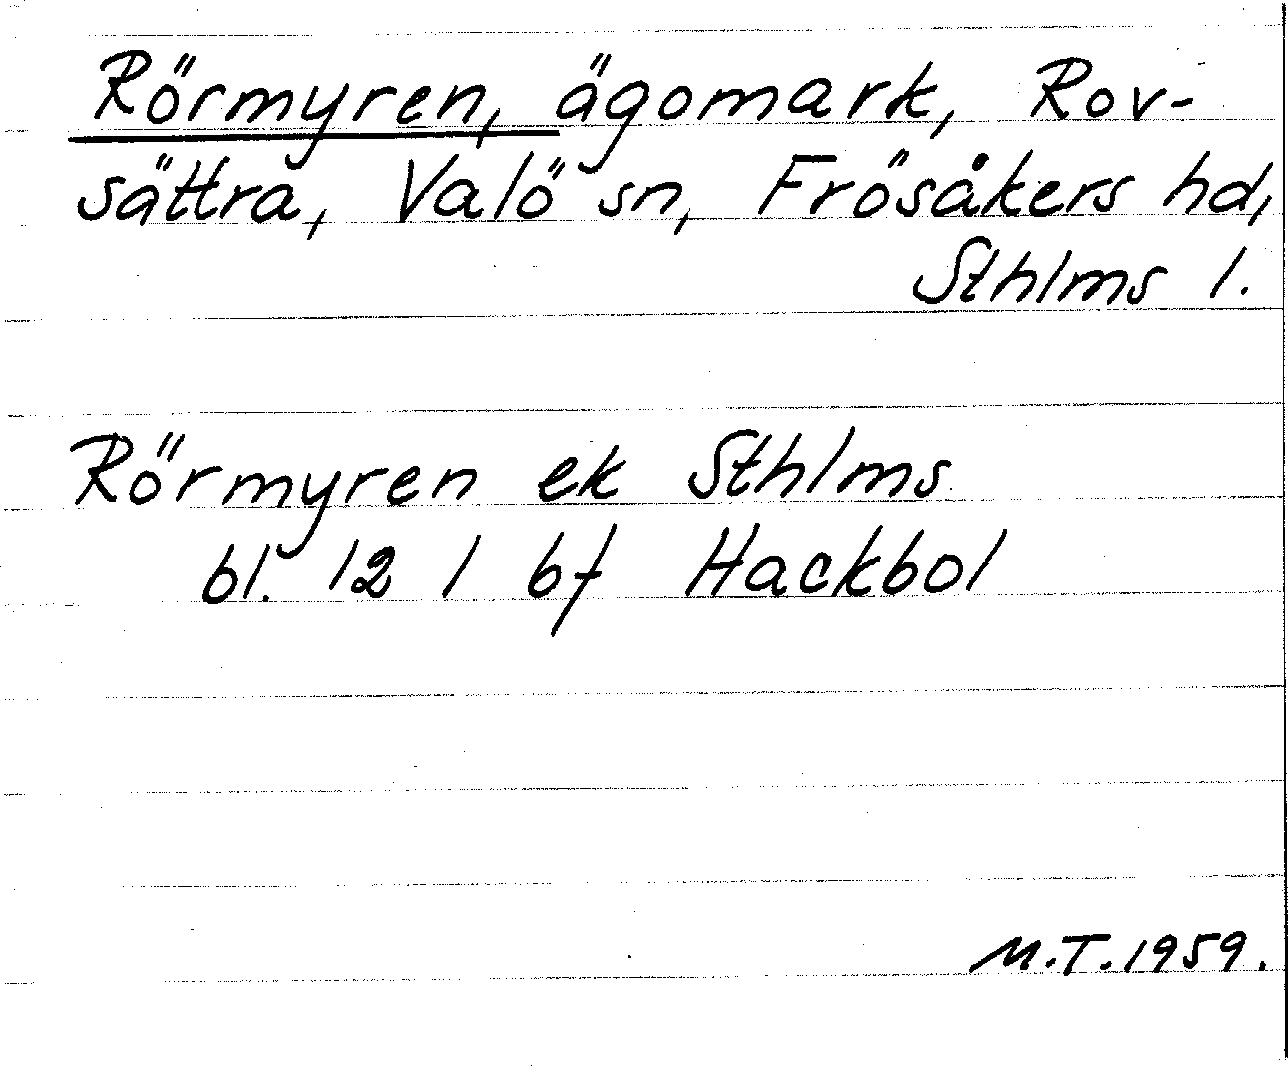 Rörmyren, ägomark, Rov-
sättra, Valö sn, Frösåkers hd,
Sthlms l.
Rörmyren ek Sthlms
bl. 12 l bf Hackbol
M.T. 1959.